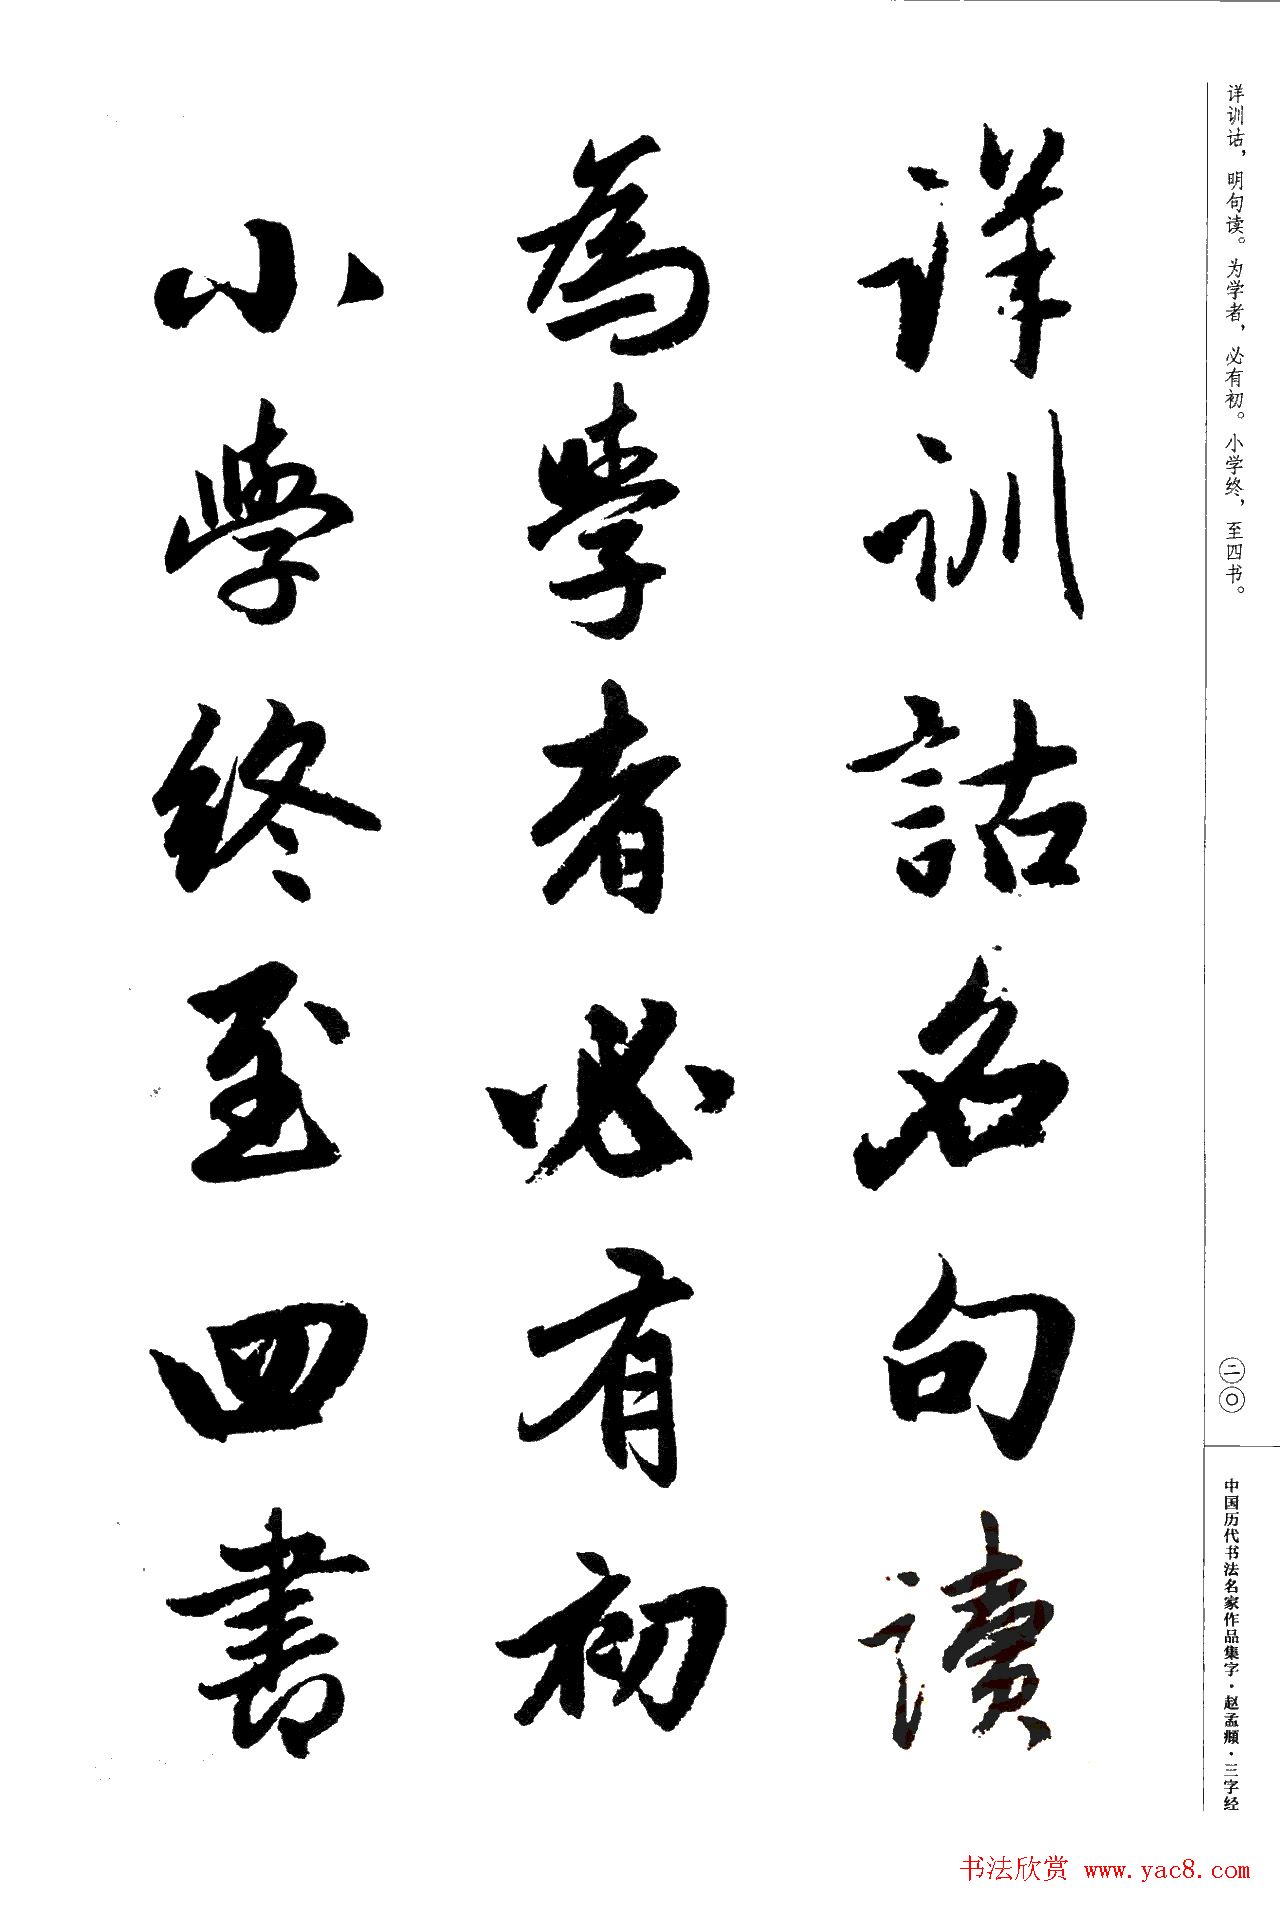 详训诂，明句读。为学者，必有初。小学终，至四书。
二〇
中国历代书法名家作品集字·赵孟頫·三字经
詳訓詁名句讀
為學者必有初
小學終至四書
书法欣赏 www.yac8.com